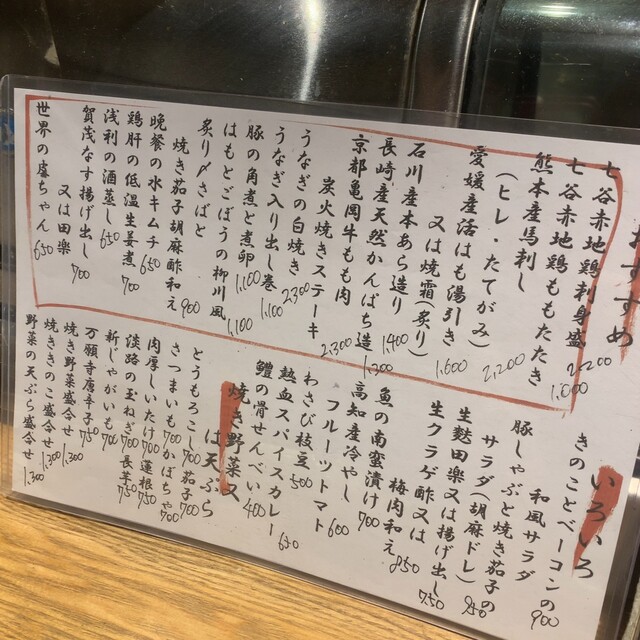 おすすめ
七谷赤地鶏刺身盛 2,200
七谷赤地鶏ももたたき 1,000
熊本産馬刺し
(ヒレ・たてがみ) 2,200
愛媛産活はも湯引き
又は焼霜(炙り) 1,600
石川産本あら造り 1,400
長崎産天然かんぱち造 1,300
京都亀岡牛もも肉
炭火焼きステーキ 2,300
うなぎの白焼き 2,300
うなぎ入り出し巻 1,100
豚の角煮と煮卵 1,100
はもとごぼうの柳川風 1,100
炙り〆さばと
焼き茄子胡麻酢和え 900
晩餐の水キムチ 650
鶏肝の低温生姜煮 700
浅利の酒蒸し 650
賀茂なす揚げ出し
又は田楽 700
世界の盛ちゃん 650
いろいろ
きのことベーコンの
和風サラダ 900
豚しゃぶと焼き茄子の
サラダ(胡麻ドレ) 950
生麩田楽又は揚げ出し 750
生クラゲ酢又は
梅肉和え 850
魚の南蛮漬け 700
高知産冷やし
フルーツトマト 600
わさび枝豆 500
熱血スパイスカレー 650
鱧の骨せんべい 400
焼き野菜又は天ぷら
とうもろこし 700 茄子 700
さつまいも 700 かぼちゃ 700
肉厚しいたけ 700 蓮根 750
淡路の玉ねぎ 700 長芋 750
新じゃがいも 700
万願寺唐辛子 750
焼き野菜盛合せ 1,300
焼ききのこ盛合せ 1,300
野菜の天ぷら盛合せ 1,300